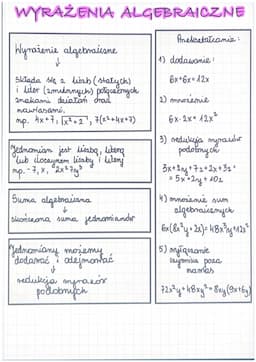 WYRAŻENIA ALGEBRAICZNE
Wyrażenie algebraiczne
↓
składa się z liczb (stałych)
i liter (zmiennych) połączonych
znakami działań oraz
nawiasami.
np. 4x+7, x²+2, 7(x²+4x+7)
Jednomian jest liczbą, literą
lub iloczynem liczby i litery
np. -7, x, -2x²7y³
Suma algebraiczna
↓
skończona suma jednomianów
Jednomiany możemy
dodawać i odejmować
↓
redukcja wyrazów
podobnych
Przekształcanie:
1) dodawanie:
6x+6x=12x
2) mnożenie
3) redukcja wyrazów
podobnych
= 5x+2y+10z
4) mnożenie sum
algebraicznych
5) wyłączanie
czynnika poza
nawias
72x²y+48xy²=8xy(9x+6y)